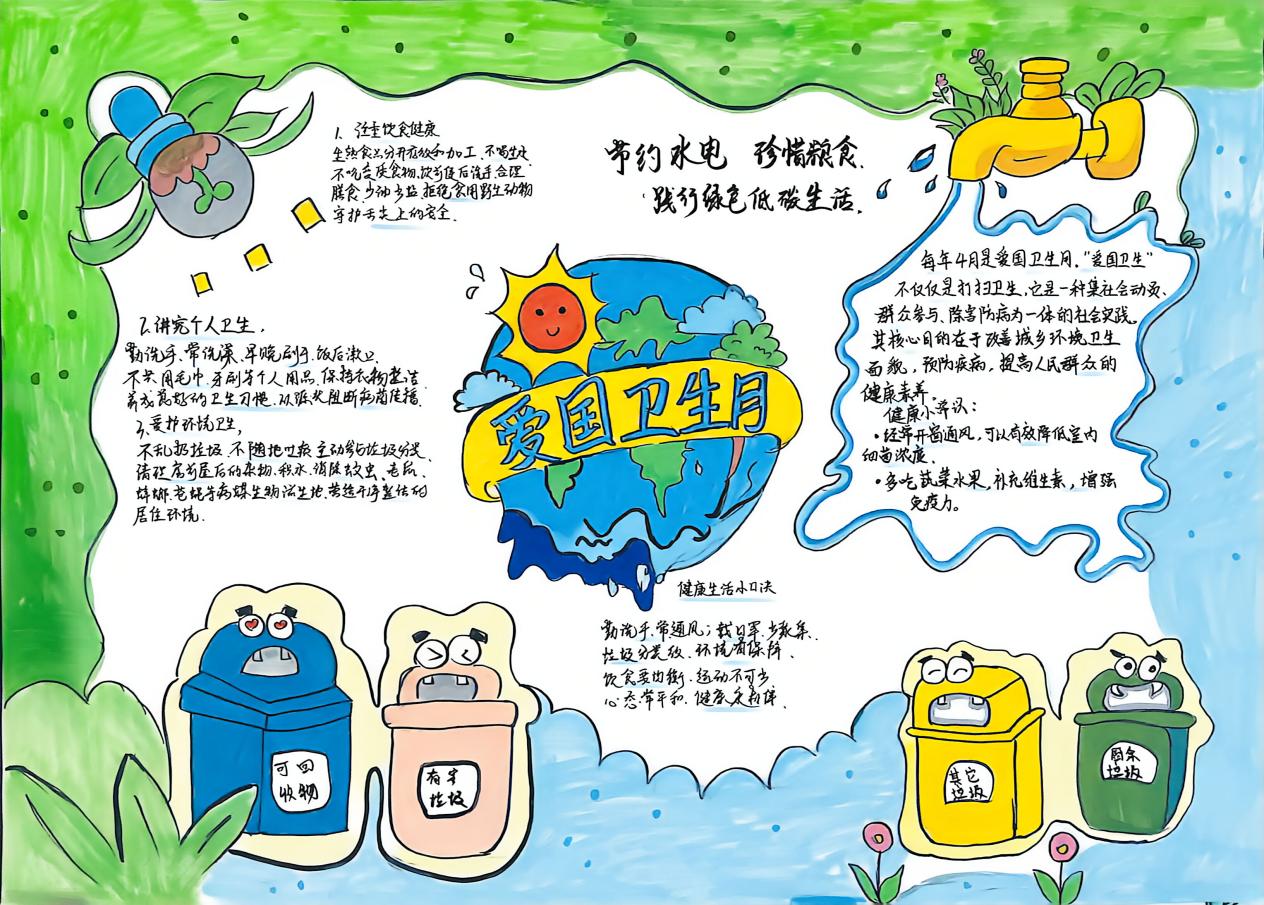 1. 注重饮食健康
生熟食品分开存放和加工、不喝生水
不吃变质食物、饮前便后洗手、合理
膳食、少油少盐、拒绝食用野生动物
守护舌尖上的安全.
节约水电 珍惜粮食.
践行绿色低碳生活.
每年4月是爱国卫生月."爱国卫生"
不仅仅是打扫卫生,它是一种集社会动员、
群众参与、除害防病为一体的社会实践。
其核心目的在于改善城乡环境卫生
面貌,预防疾病,提高人民群众的
健康素养。
健康小常识:
·经常开窗通风,可以有效降低室内
细菌浓度。
·多吃蔬菜水果,补充维生素,增强
免疫力。
2.讲究个人卫生,
勤洗手、常洗澡、早晚刷牙、饭后漱口.
不共用毛巾、牙刷等个人用品、保持衣物整洁
养成良好的卫生习惯、阻断病菌传播.
3.爱护环境卫生,
不乱扔垃圾 不随地吐痰 主动参与垃圾分类、
清理房前屋后的杂物、积水、消除蚊虫、老鼠、
蟑螂、苍蝇等病媒生物滋生地,营造干净整洁的
居住环境.
爱国卫生月
健康生活小口诀
勤洗手、常通风;戴口罩、少聚集.
垃圾分类放、环境有保障、
饮食要均衡、运动不可少、
心态常平和、健康
可回
收物
有害
垃圾
其它
垃圾
厨余
垃圾